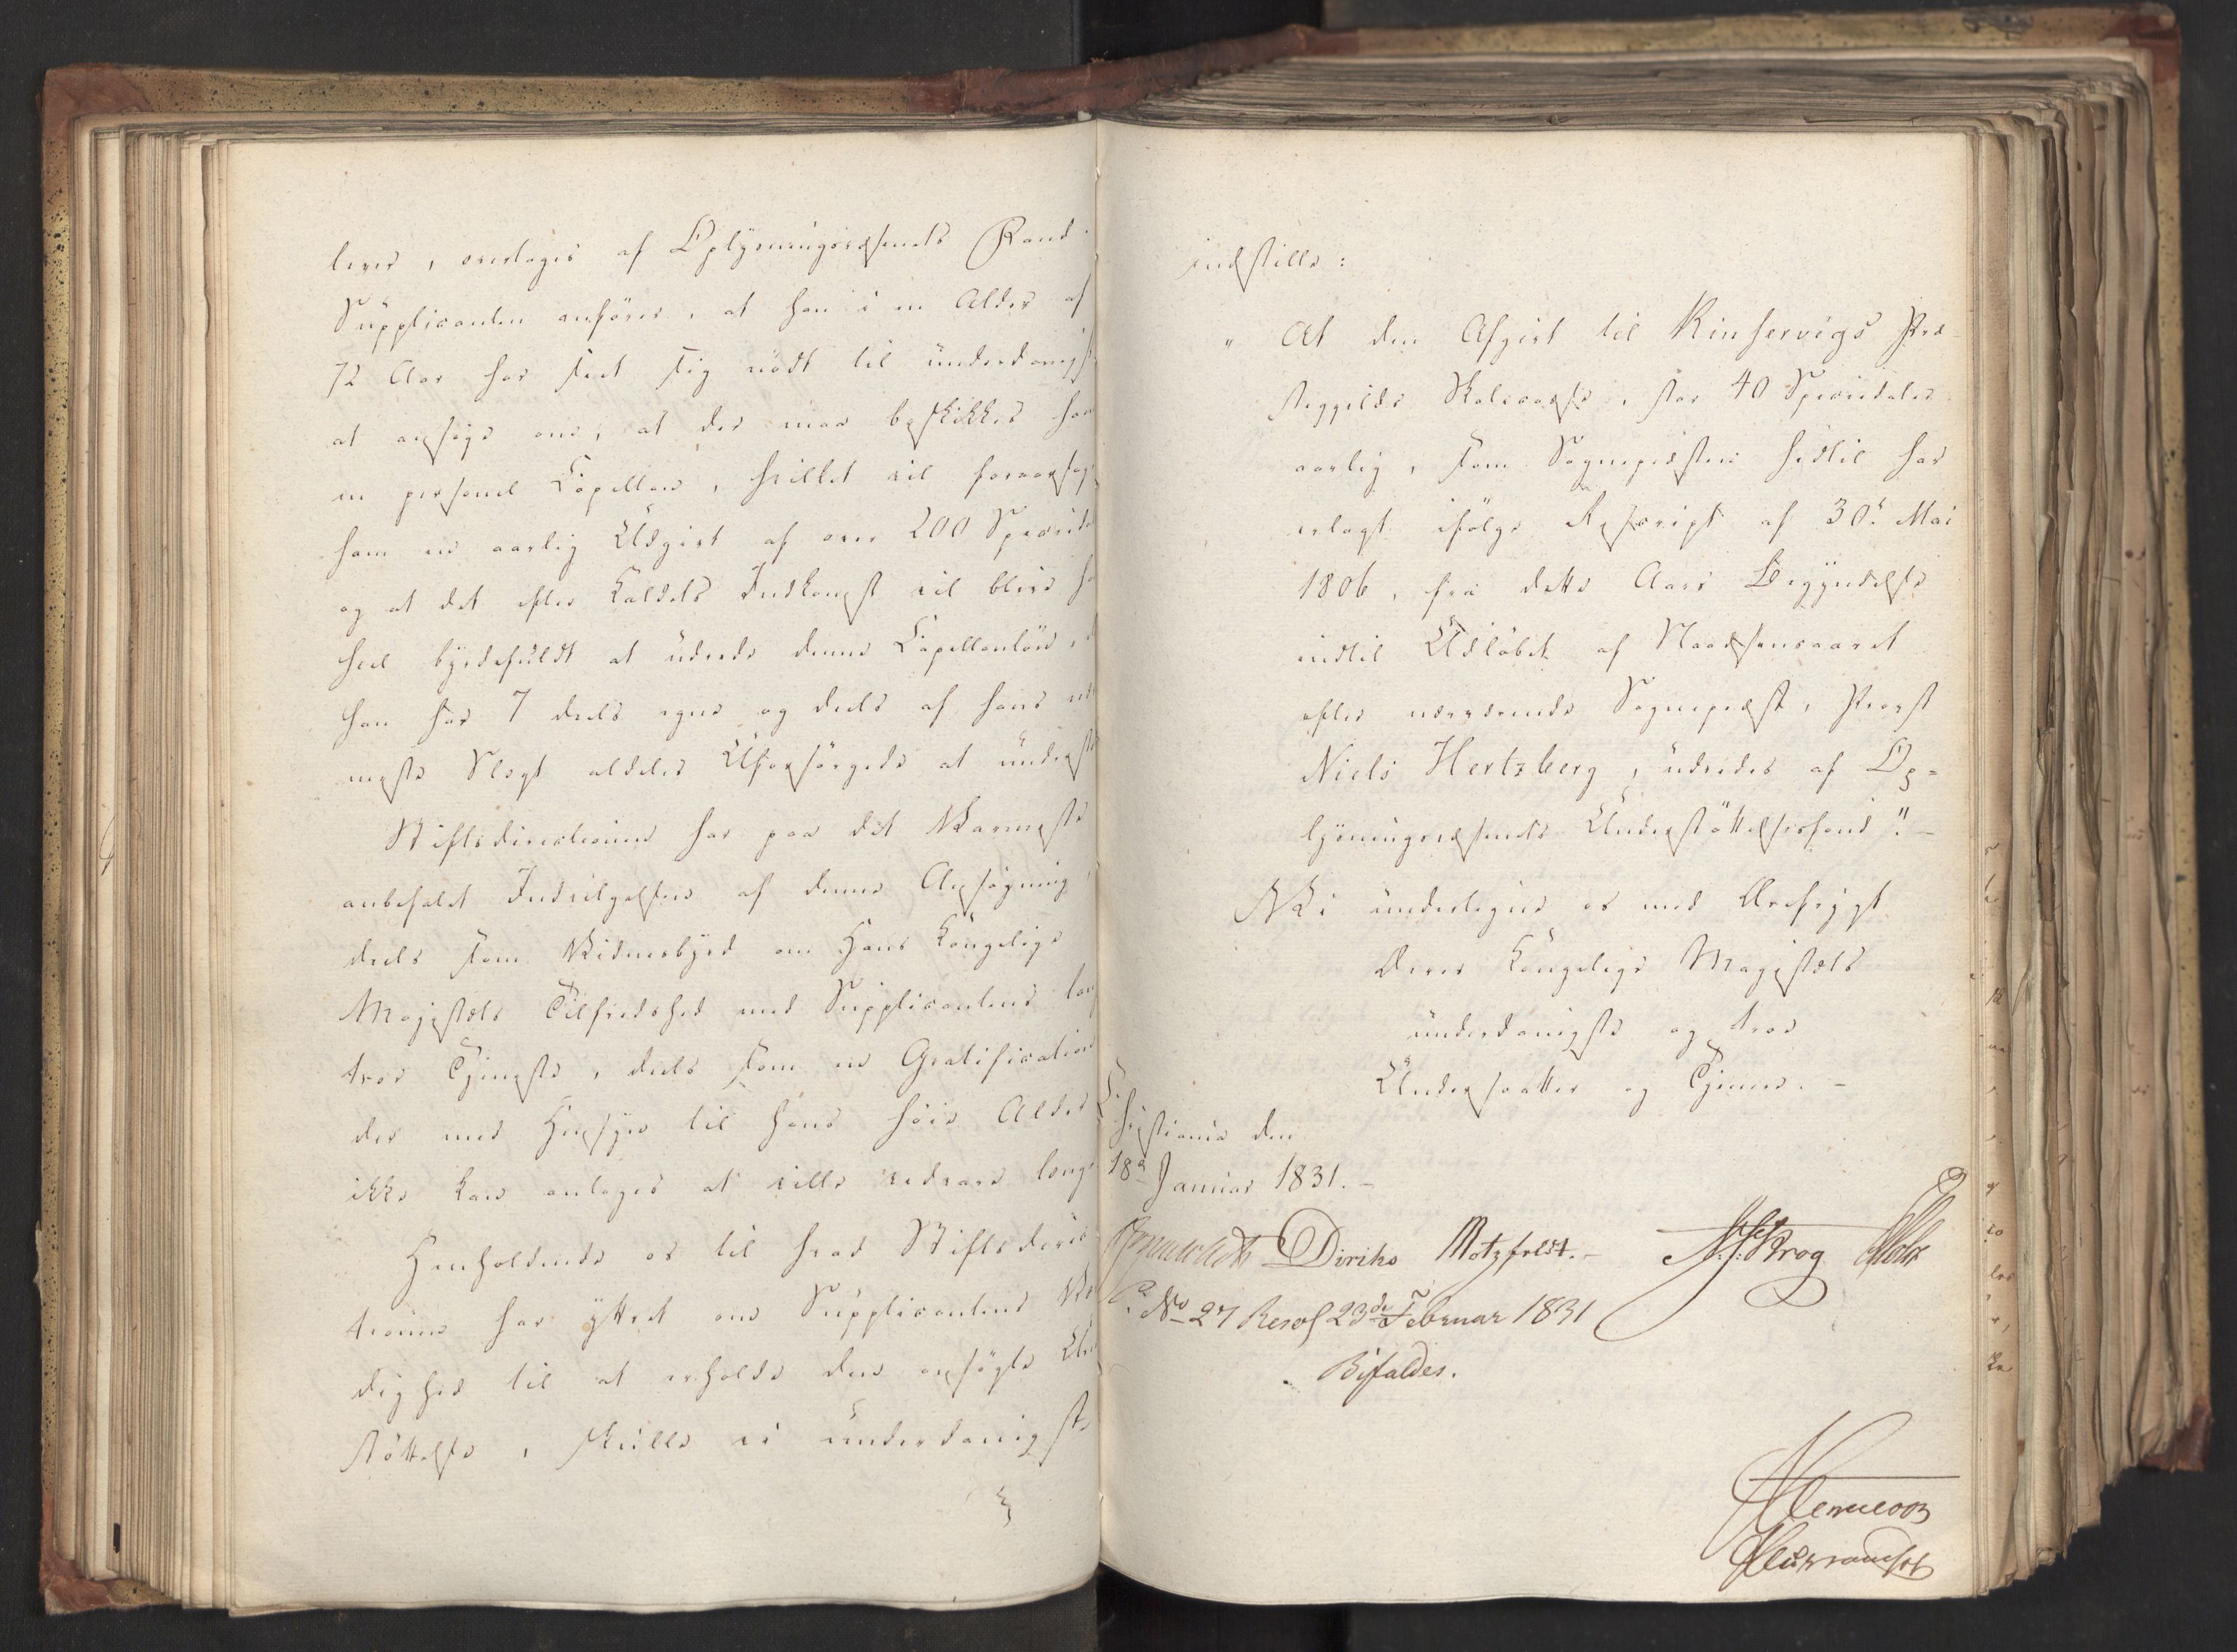 lever, overtages af Oplysningsvæsenets Fond
Supplicanten anfører, at han i en Alder af
72 Aar har seet sig nødt til underdanigst
at ansøge om, at der maa beskikkes ham
en personel Capellan, hvilket vil foraarsage
ham en aarlig Udgivt af over 200 Speciedal
og at det efter Kaldets Indkomst vil blive ham
heel byrdefuldt at udrede denne Capellanløn,
han har 7 deels egne og deels af hans
meste Slægt aldeles Uforsørgede at underst
Stiftsdirectionen har paa det Varmeste
anbefalet Indvilgelsen af denne Ansøgning,
deels som Vidnesbyrd om Hans Kongelige
Majestæts Tilfredshed med Supplicantens lange
troe Tjeneste, deels som en Gratification
der med Hensyn til hans høie Alder
ikke kan antages at ville vedvare længe
Henholdende os til hvad Stiftsdirec-
tionen har yttret om Supplicantens Vær
dighed til at erholde den ansøgte Un
støttelse, skulle vi underdanigst
indstille:
"At den Afgivt til Kinservigs Præ-
stegjelds Skolecasse, stor 40 Speciedaler
aarlig, som Sognepræsten hidtil har
erlagt ifølge Rescript af 30te Mai
1806, fra dette Aars Begyndelse
indtil Udløbet af Naadsensaaret
efter nærværende Sognepræst, Provst
Niels Hertzberg, udredes af Op=
lysningsvæsenets Understøttelsesfond". -
Vi undertegne os med Ærefrygt
Deres Kongelige Majestæts
underdanigste og troe
Undersaatter og Tjenere. -
Christiania den
18de Januar 1831. -
Diriks Motzfeldt. - Krog Holst
No 27 Resol 23de Februar 1831
Bifaldes.